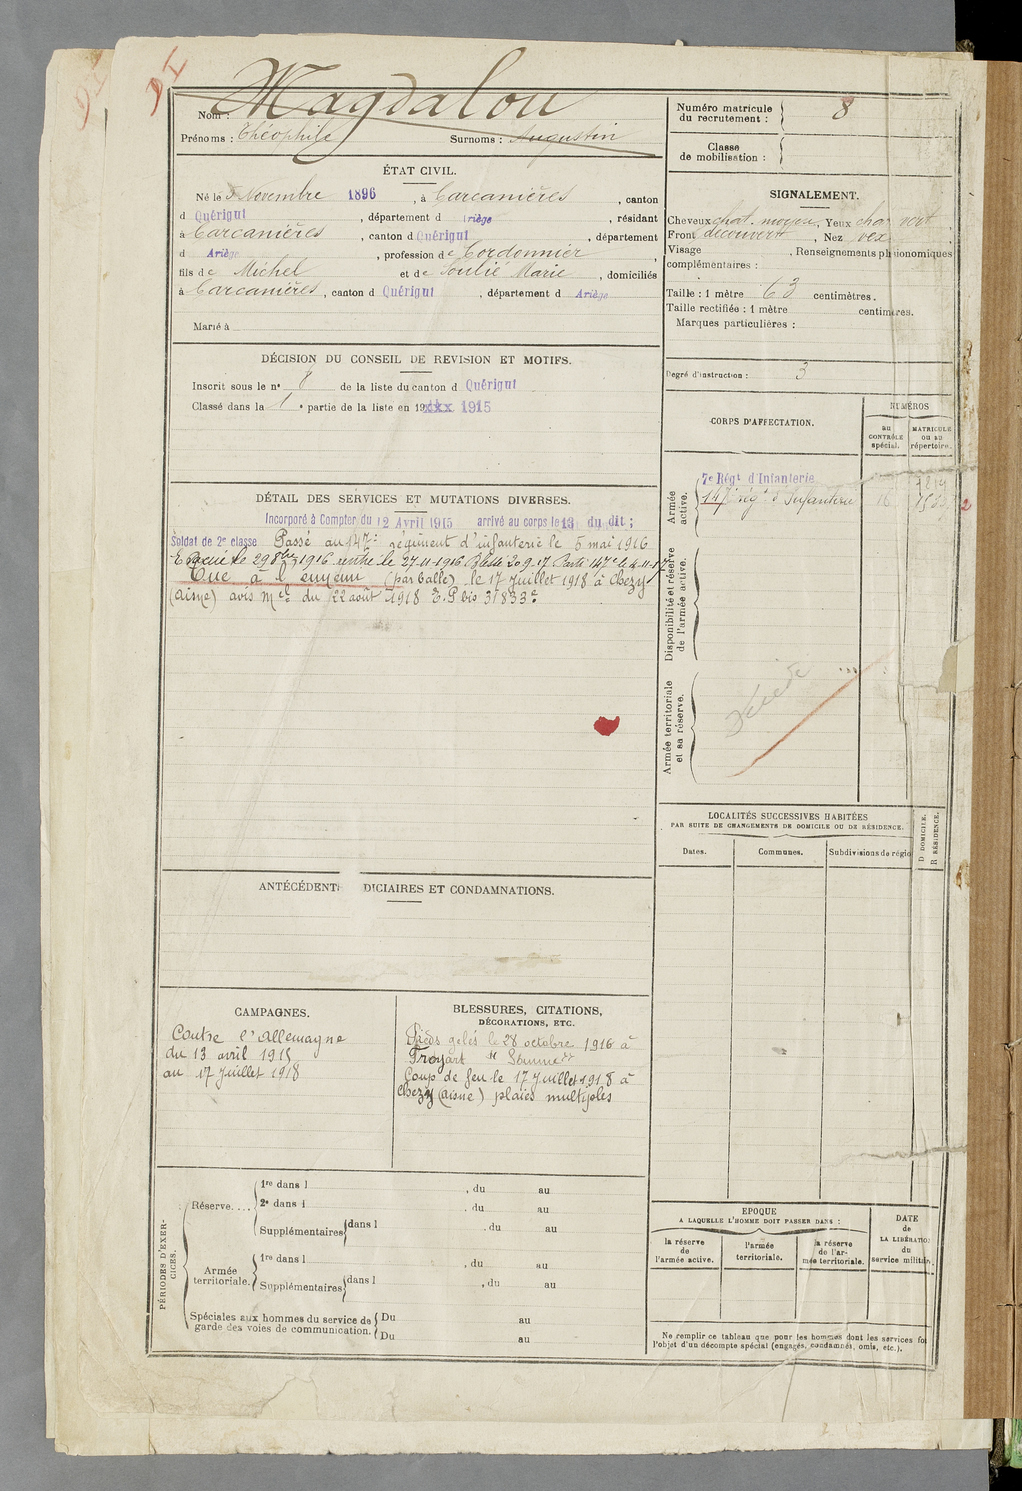 Nom : Magdalou
Prénoms : Théophile Surnoms : Augustin
Numéro matricule
du recrutement : 8
Classe
de mobilisation :
ÉTAT CIVIL.
Né le 5 Novembre 1896, à Carcanières, canton
d Quérigut, département d Ariège, résidant
à Carcanières, canton d Quérigut, département
d Ariège, profession de Cordonnier,
fils de Michel et de Soulié Marie, domiciliés
à Carcanières, canton d Quérigut, département d Ariège
Marié à
SIGNALEMENT.
Cheveux chat. moyen, Yeux vert
Front découvert, Nez vex
Visage , Renseignements physionomiques
complémentaires :
Taille : 1 mètre 63 centimètres.
Taille rectifiée : 1 mètre centimètres.
Marques particulières :
Degré d'instruction : 3
DÉCISION DU CONSEIL DE REVISION ET MOTIFS.
Inscrit sous le n° 8 de la liste du canton d Quérigut
Classé dans la 1e partie de la liste en 19xxx 1915
CORPS D'AFFECTATION.
NUMÉROS
au
CONTRÔLE
spécial.
MATRICULE
ou au
répertoire.
Armée
active.
7e Régt d'Infanterie
147e régt d'Infanterie 16
2
Disponibilité et réserve
de l'armée active.
Armée territoriale
et sa réserve.
Décédé
DÉTAIL DES SERVICES ET MUTATIONS DIVERSES.
Incorporé à Compter du 12 Avril 1915 arrivé au corps le 13 du dit ;
Soldat de 2e classe Passé au 147e régiment d'infanterie le 5 mai 1916
Evacué le 29 8bre 1916 rentré le 27-11-1916 Blessé 20 9 17 Parti 147e le 4-11-17
Tué à l'ennemi (par balle) le 17 juillet 1918 à Chezy
(aisne) avis mel du 22 août 1918 E.P bis 31833e
ANTÉCÉDENTS JUDICIAIRES ET CONDAMNATIONS.
LOCALITÉS SUCCESSIVES HABITÉES
PAR SUITE DE CHANGEMENTS DE DOMICILE OU DE RÉSIDENCE.
Dates. Communes. Subdivisions de régio
D DOMICILE.
R RÉSIDENCE.
CAMPAGNES.
Contre l'Allemagne
du 13 avril 1915
au 17 Juillet 1918
BLESSURES, CITATIONS,
DÉCORATIONS, ETC.
Pieds gelés le 28 octobre 1916 à
Froyart "Somme"
Coup de feu le 17 Juillet 1918 à
Chezy (aisne) plaies multiples
PÉRIODES D'EXERCICES.
Réserve....
1re dans l , du au
2e dans l , du au
Supplémentaires dans l , du au
Armée
territoriale.
1re dans l , du au
Supplémentaires dans l , du au
Spéciales aux hommes du service de
garde des voies de communication.
Du au
Du au
EPOQUE
A LAQUELLE L'HOMME DOIT PASSER DANS :
la réserve
de
l'armée active.
l'armée
territoriale.
la réserve
de l'ar-
mée territoriale.
DATE
de
LA LIBÉRATIO
du
service militair.
Ne remplir ce tableau que pour les hommes dont les services fo
l'objet d'un décompte spécial (engagés, condamnés, omis, etc.).